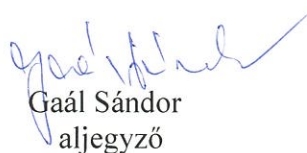 Gaál Sándor
aljegyző